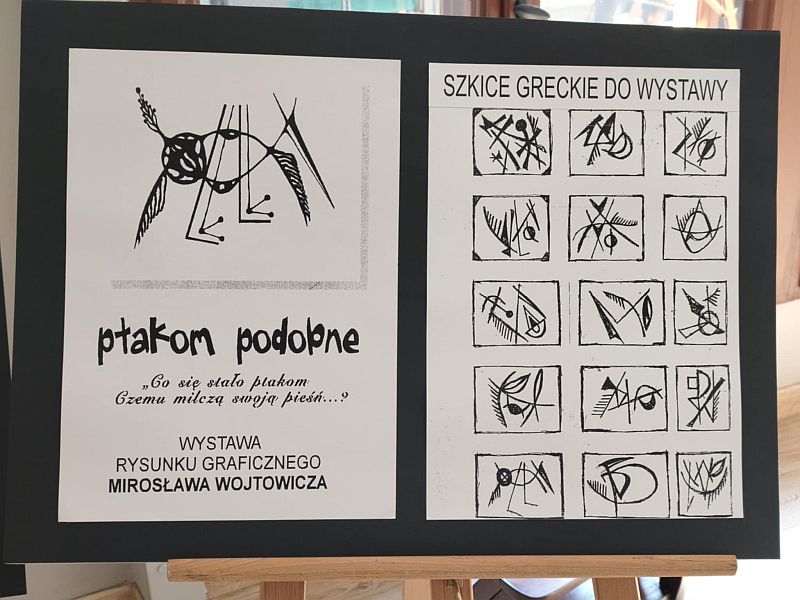 ptakom podobne
„Co się stało ptakom
Czemu milczą swoją pieśń...?
WYSTAWA
RYSUNKU GRAFICZNEGO
MIROSŁAWA WOJTOWICZA
SZKICE GRECKIE DO WYSTAWY